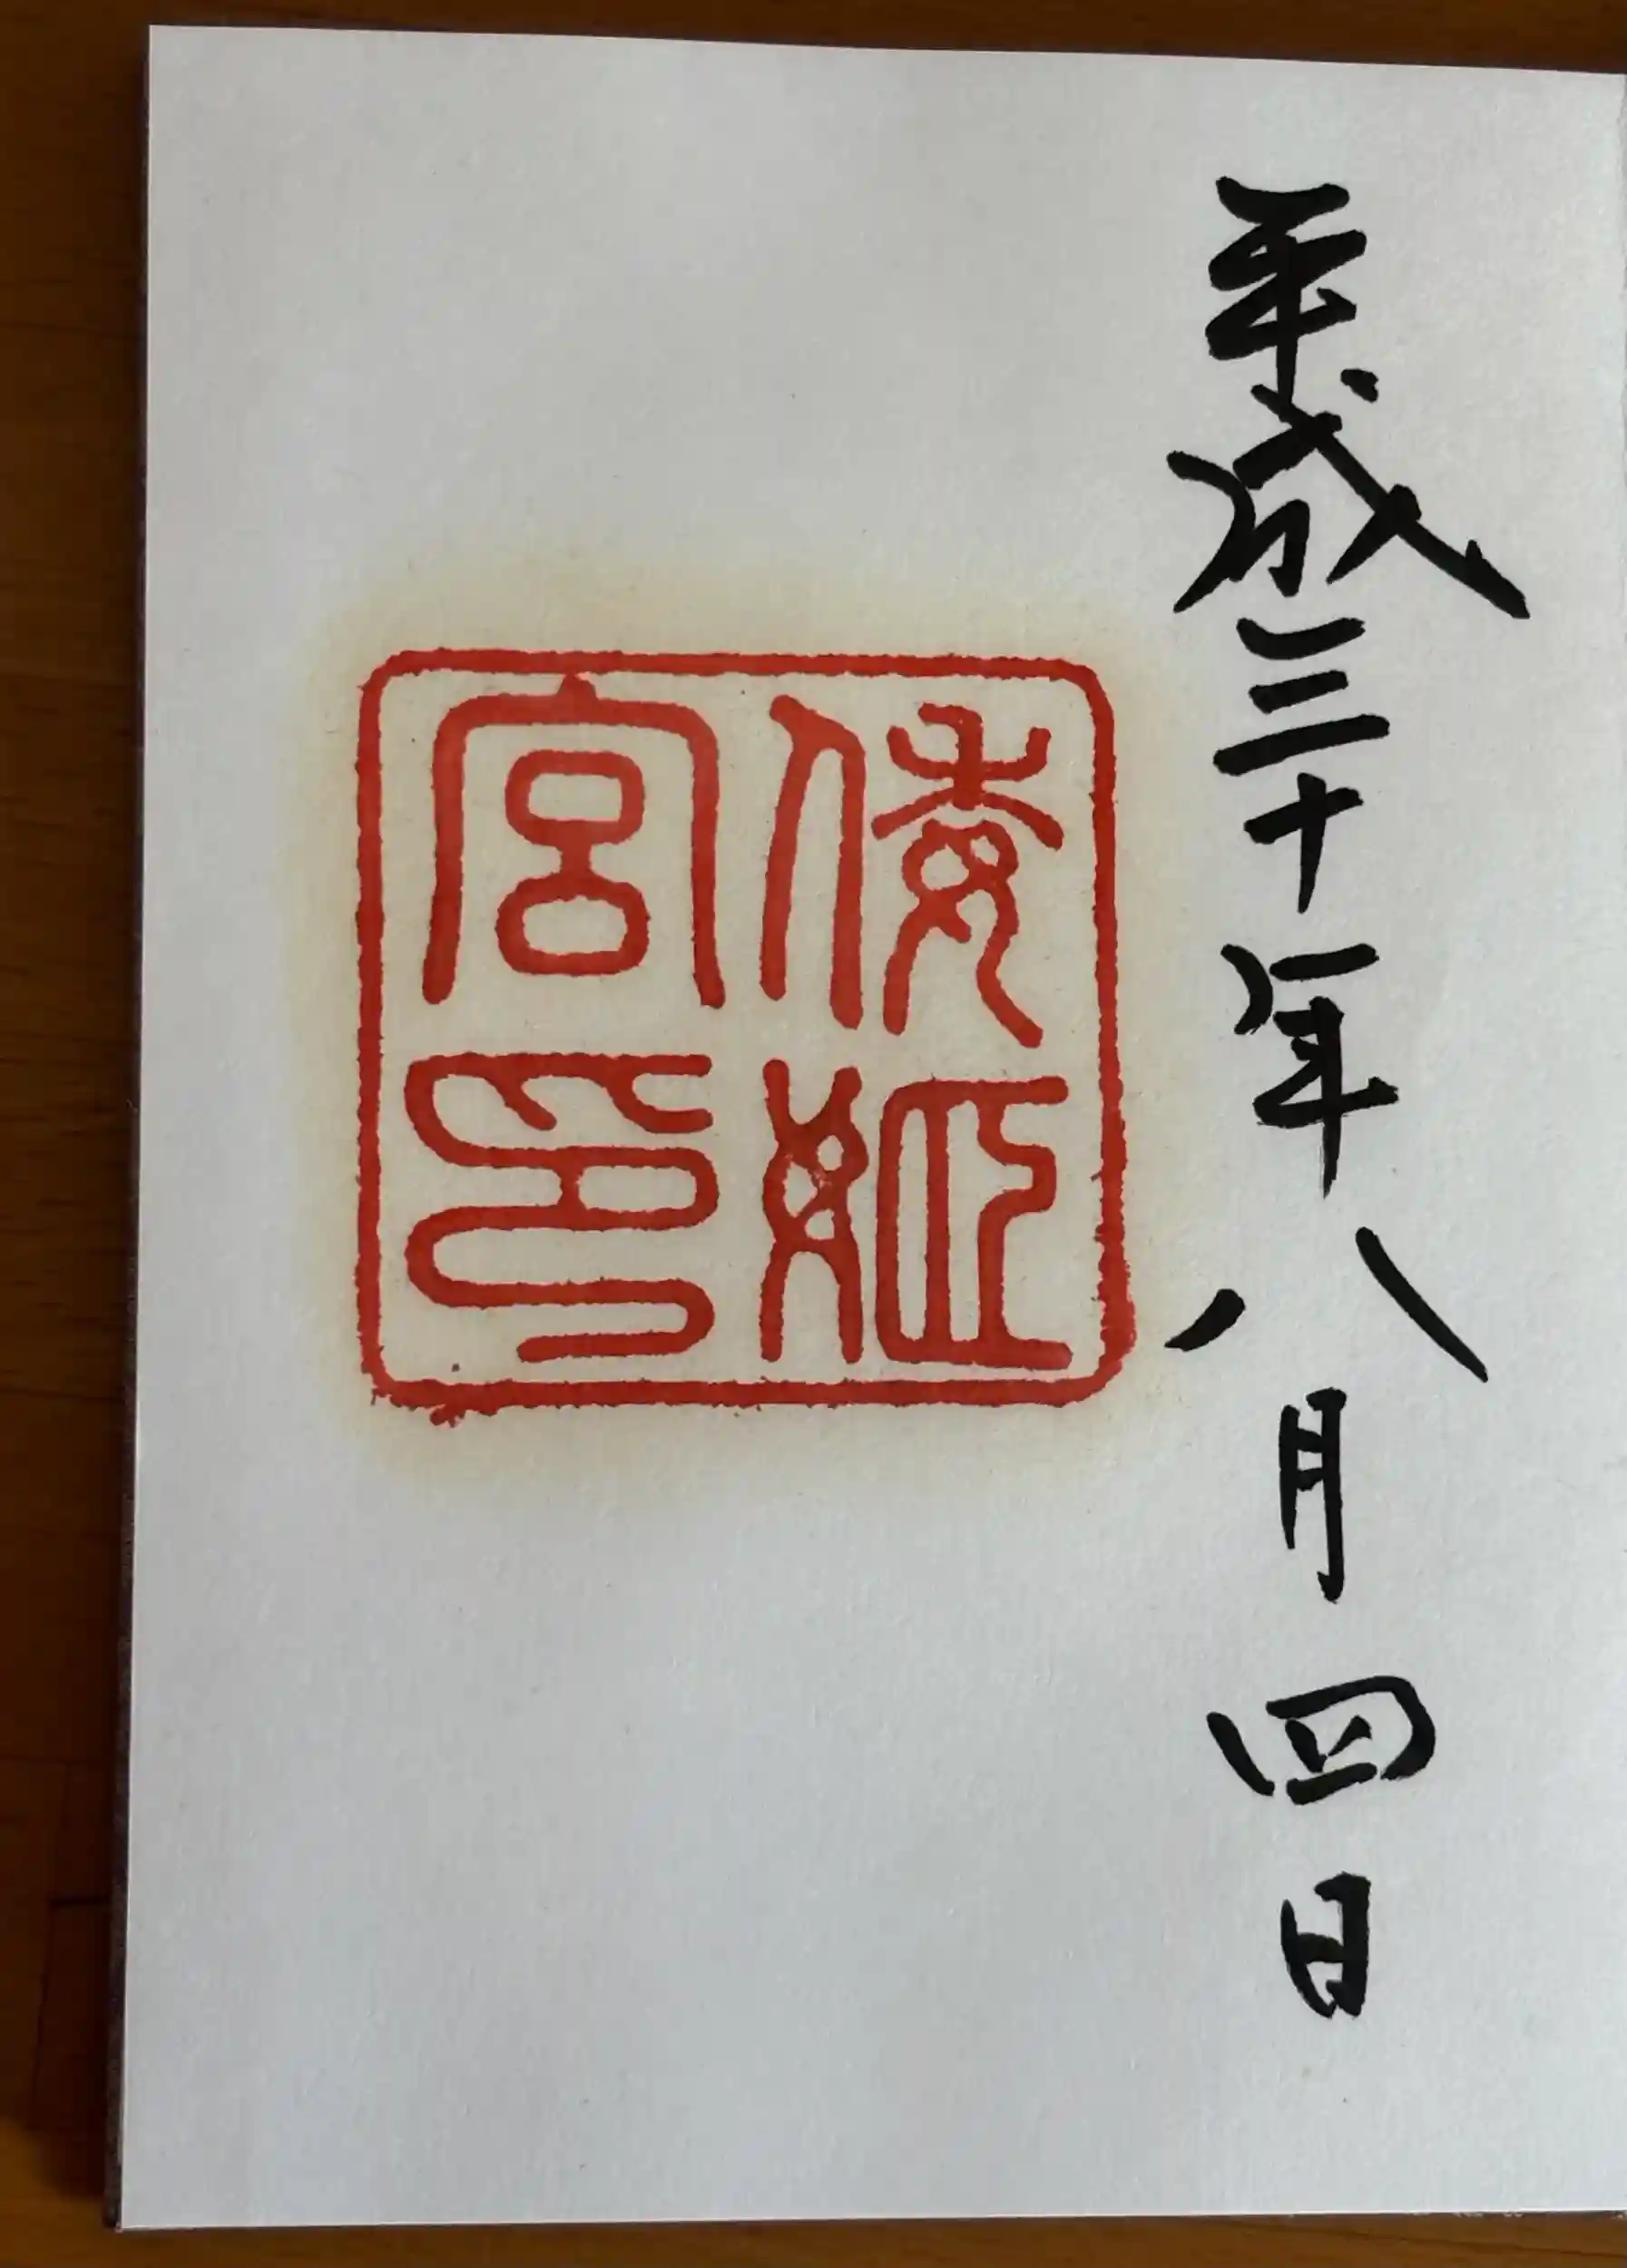 平成三十年八月四日
倭姫
宮印